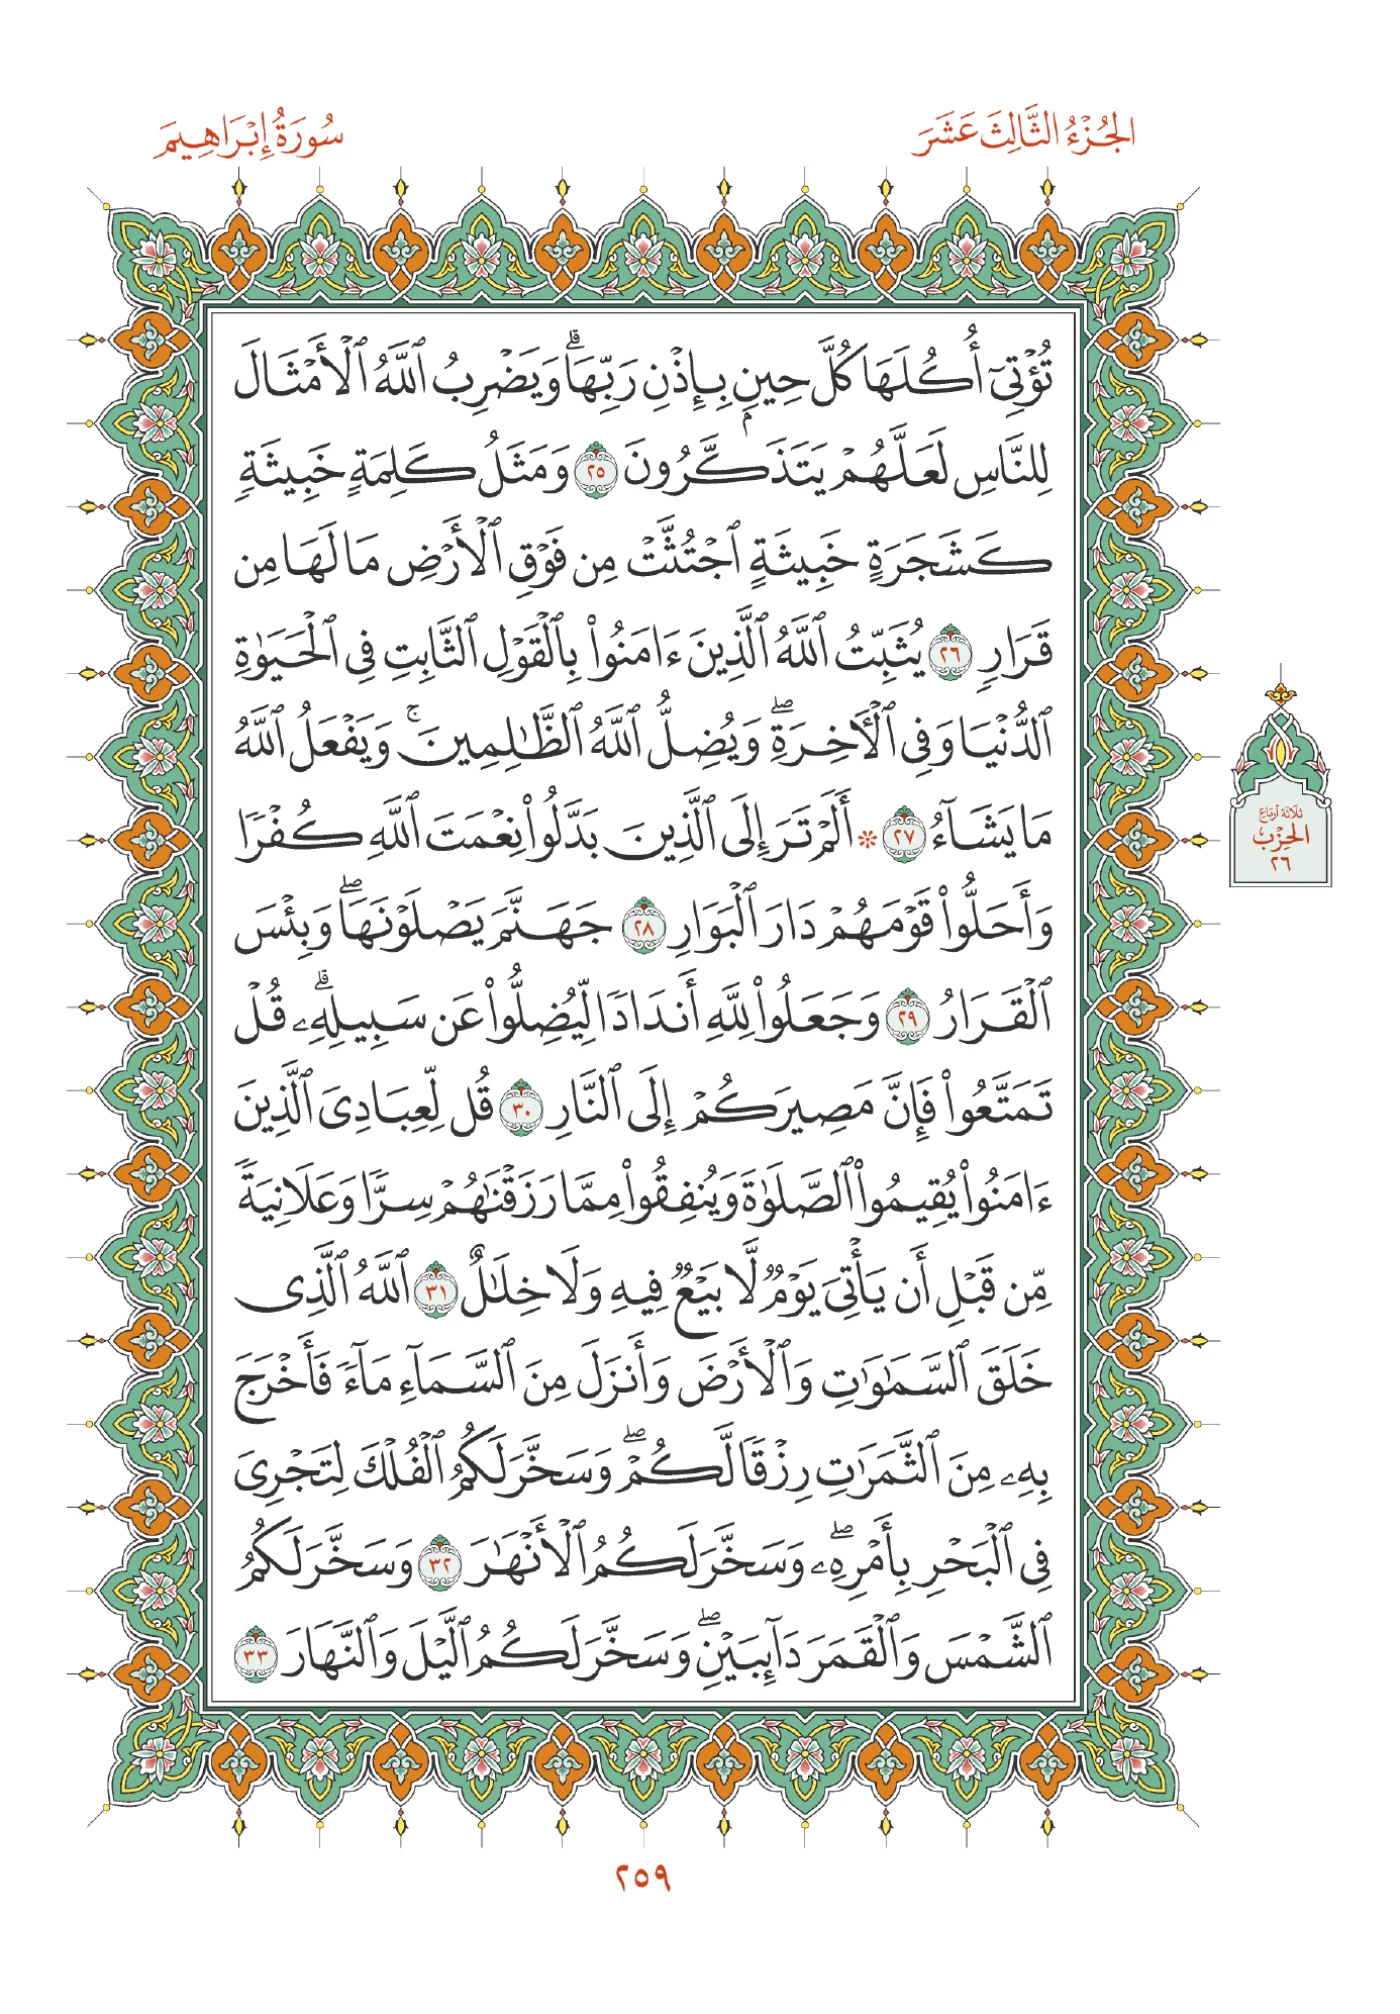 الجُزْءُ الثَّالِثَ عَشَرَ
سُورَةُ إِبْرَاهِيمَ
تُؤْتِىٓ أُكُلَهَا كُلَّ حِينِۭ بِإِذْنِ رَبِّهَاۗ وَيَضْرِبُ ٱللَّهُ ٱلْأَمْثَالَ
لِلنَّاسِ لَعَلَّهُمْ يَتَذَكَّرُونَ ٢٥ وَمَثَلُ كَلِمَةٍ خَبِيثَةٍ
كَشَجَرَةٍ خَبِيثَةٍ ٱجْتُثَّتْ مِن فَوْقِ ٱلْأَرْضِ مَا لَهَا مِن
قَرَارٍ ٢٦ يُثَبِّتُ ٱللَّهُ ٱلَّذِينَ ءَامَنُوا۟ بِٱلْقَوْلِ ٱلثَّابِتِ فِى ٱلْحَيَوٰةِ
ٱلدُّنْيَا وَفِى ٱلْـَٔاخِرَةِۖ وَيُضِلُّ ٱللَّهُ ٱلظَّـٰلِمِينَۚ وَيَفْعَلُ ٱللَّهُ
مَا يَشَآءُ ٢٧ * أَلَمْ تَرَ إِلَى ٱلَّذِينَ بَدَّلُوا۟ نِعْمَتَ ٱللَّهِ كُفْرًا
وَأَحَلُّوا۟ قَوْمَهُمْ دَارَ ٱلْبَوَارِ ٢٨ جَهَنَّمَ يَصْلَوْنَهَاۖ وَبِئْسَ
ٱلْقَرَارُ ٢٩ وَجَعَلُوا۟ لِلَّهِ أَندَادًا لِّيُضِلُّوا۟ عَن سَبِيلِهِۦۗ قُلْ
تَمَتَّعُوا۟ فَإِنَّ مَصِيرَكُمْ إِلَى ٱلنَّارِ ٣٠ قُل لِّعِبَادِىَ ٱلَّذِينَ
ءَامَنُوا۟ يُقِيمُوا۟ ٱلصَّلَوٰةَ وَيُنفِقُوا۟ مِمَّا رَزَقْنَـٰهُمْ سِرًّا وَعَلَانِيَةً
مِّن قَبْلِ أَن يَأْتِىَ يَوْمٌ لَّا بَيْعٌ فِيهِ وَلَا خِلَـٰلٌ ٣١ ٱللَّهُ ٱلَّذِى
خَلَقَ ٱلسَّمَـٰوَٰتِ وَٱلْأَرْضَ وَأَنزَلَ مِنَ ٱلسَّمَآءِ مَآءً فَأَخْرَجَ
بِهِۦ مِنَ ٱلثَّمَرَٰتِ رِزْقًا لَّكُمْۖ وَسَخَّرَ لَكُمُ ٱلْفُلْكَ لِتَجْرِىَ
فِى ٱلْبَحْرِ بِأَمْرِهِۦۖ وَسَخَّرَ لَكُمُ ٱلْأَنْهَـٰرَ ٣٢ وَسَخَّرَ لَكُمُ
ٱلشَّمْسَ وَٱلْقَمَرَ دَآئِبَيْنِۖ وَسَخَّرَ لَكُمُ ٱلَّيْلَ وَٱلنَّهَارَ ٣٣
ثلاثة أرباع
الحِزْب
٢٦
٢٥٩